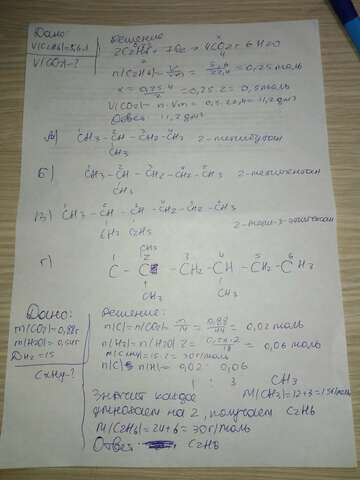 Дано:
V(C2H6)=5,6л
V(CO2)-?
Решение
2C2H6 + 7O2 → 4CO2 + 6H2O
n(C2H6) = V/Vm = 5,6/22,4 = 0,25 моль
x = 0,25·4/2 = 0,25·2 = 0,5 моль
V(CO2) = n·Vm = 0,5·22,4 = 11,2 дм3
Ответ: 11,2 дм3
CH3 - CH - CH2 - CH3 2-метилбутан
CH3
б) CH3 - CH - CH2 - CH2 - CH3 2-метилпентан
CH3
CH3 - CH - CH - CH2 - CH2 - CH3
CH3 C2H5 2-метил-3-этилгексан
CH3
г) C - C - CH2 - CH - CH2 - CH3
CH3 CH3
Дано:
m(CO2)=0,88г
m(H2O)=0,54г
DH2=15
CxHy-?
Решение:
n(C)=n(CO2)= m/M = 0,88/44 = 0,02 моль
n(H)=n(H2O)·2 = 0,54·2/18 = 0,06 моль
M(CxHy)=15·2=30г/моль
n(C):n(H)=0,02:0,06
1 : 3 CH3
M(CH3)=12+3=15г/моль
Значит каждое
умножаем на 2, получаем C2H6
M(C2H6)=24+6=30г/моль
Ответ C2H6